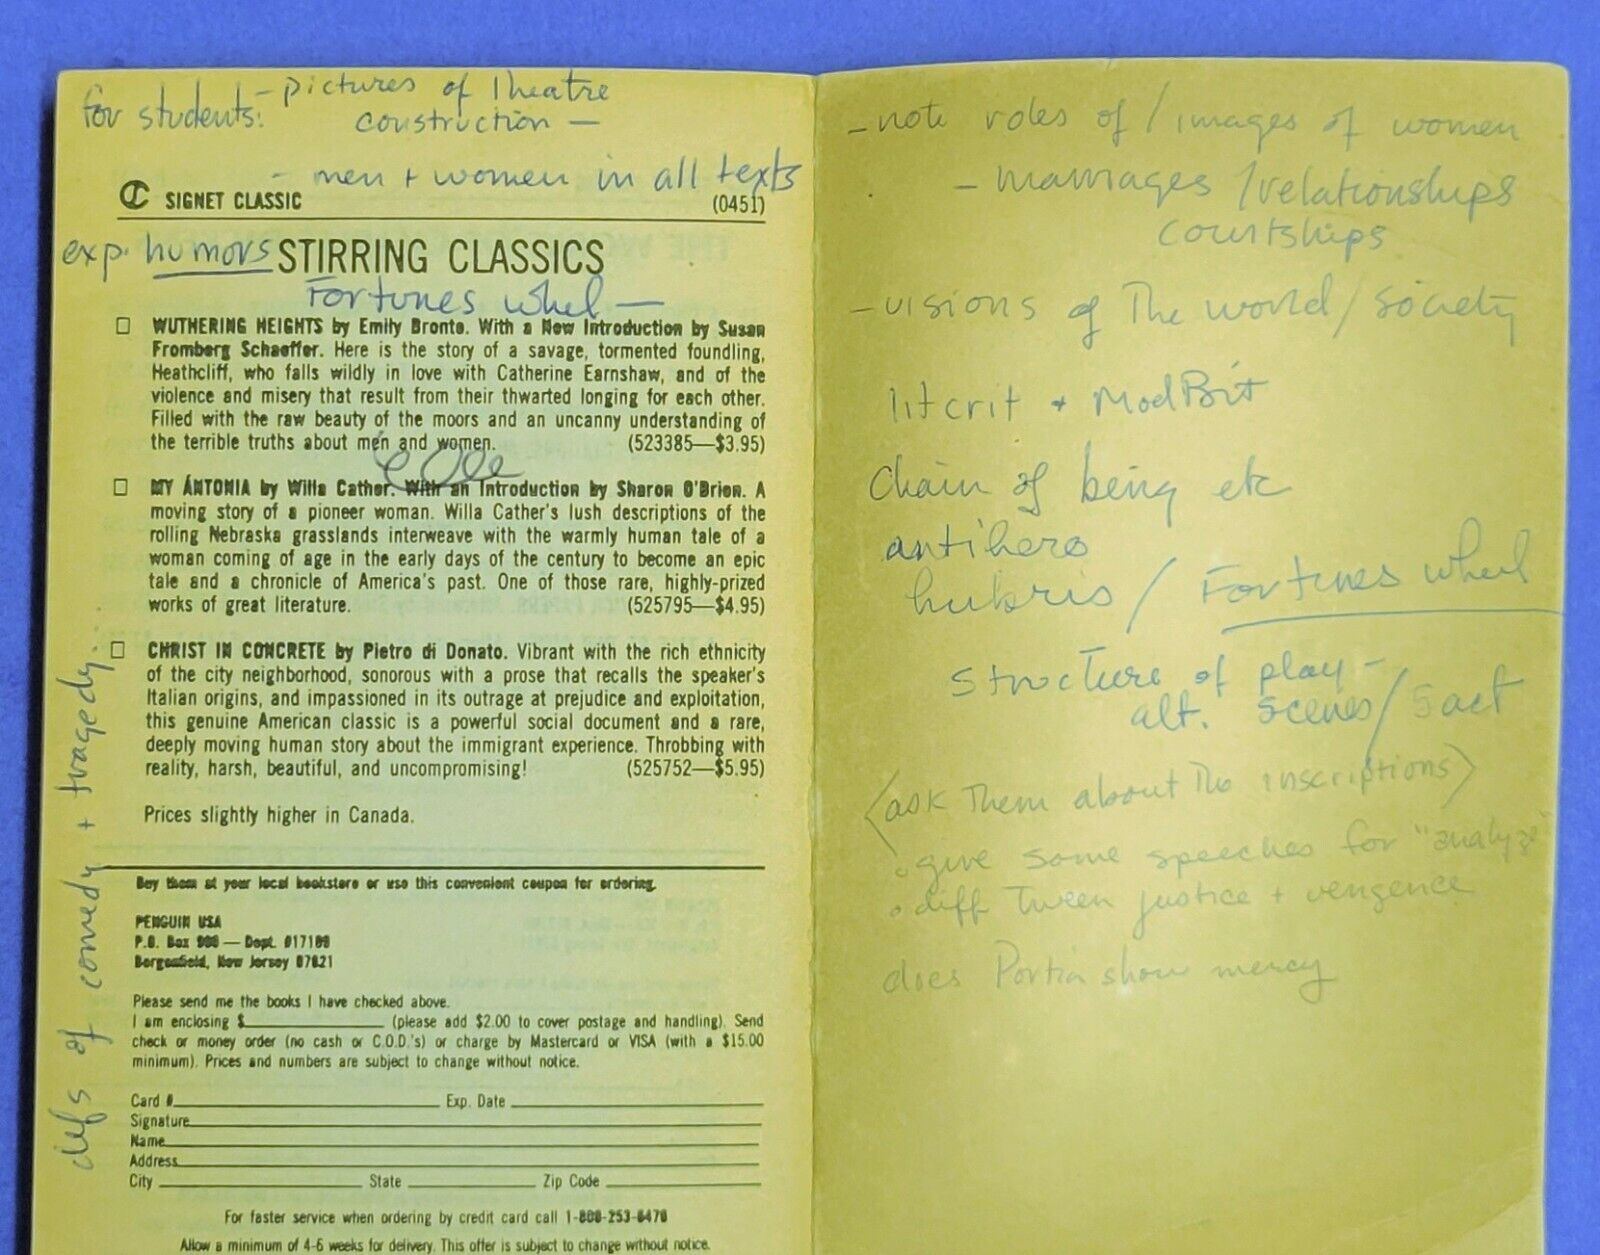 for students: - pictures of Theatre
construction —
- men + women in all texts
SIGNET CLASSIC (0451)
exp. humors STIRRING CLASSICS
Fortunes whel —
□ WUTHERING HEIGHTS by Emily Bronte. With a New Introduction by Susan
Fromberg Schaeffer. Here is the story of a savage, tormented foundling,
Heathcliff, who falls wildly in love with Catherine Earnshaw, and of the
violence and misery that result from their thwarted longing for each other.
Filled with the raw beauty of the moors and an uncanny understanding of
the terrible truths about men and women. (523385—$3.95)
□ MY ÁNTONIA by Willa Cather. With an Introduction by Sharon O'Brien. A
moving story of a pioneer woman. Willa Cather's lush descriptions of the
rolling Nebraska grasslands interweave with the warmly human tale of a
woman coming of age in the early days of the century to become an epic
tale and a chronicle of America's past. One of those rare, highly-prized
works of great literature. (525795—$4.95)
□ CHRIST IN CONCRETE by Pietro di Donato. Vibrant with the rich ethnicity
of the city neighborhood, sonorous with a prose that recalls the speaker's
Italian origins, and impassioned in its outrage at prejudice and exploitation,
this genuine American classic is a powerful social document and a rare,
deeply moving human story about the immigrant experience. Throbbing with
reality, harsh, beautiful, and uncompromising! (525752—$5.95)
Prices slightly higher in Canada.
defs of comedy + tragedy...
Buy them at your local bookstore or use this convenient coupon for ordering.
PENGUIN USA
P.O. Box 999 — Dept. #17109
Bergenfield, New Jersey 07621
Please send me the books I have checked above.
I am enclosing $__________ (please add $2.00 to cover postage and handling). Send
check or money order (no cash or C.O.D.'s) or charge by Mastercard or VISA (with a $15.00
minimum). Prices and numbers are subject to change without notice.
Card #__________ Exp. Date __________
Signature__________
Name__________
Address__________
City __________ State __________ Zip Code __________
For faster service when ordering by credit card call 1-800-253-6476
Allow a minimum of 4-6 weeks for delivery. This offer is subject to change without notice.
- note roles of / images of women
- marriages / relationships
courtships
- visions of The world / society
lit crit + ModBrit
Chain of being etc
antihero
hubris / Fortunes wheel
Structure of play -
alt. scenes / 5 act
<ask Them about The inscriptions>
• give some speeches for "analyze"
• diff tween justice + vengence
does Portia show mercy